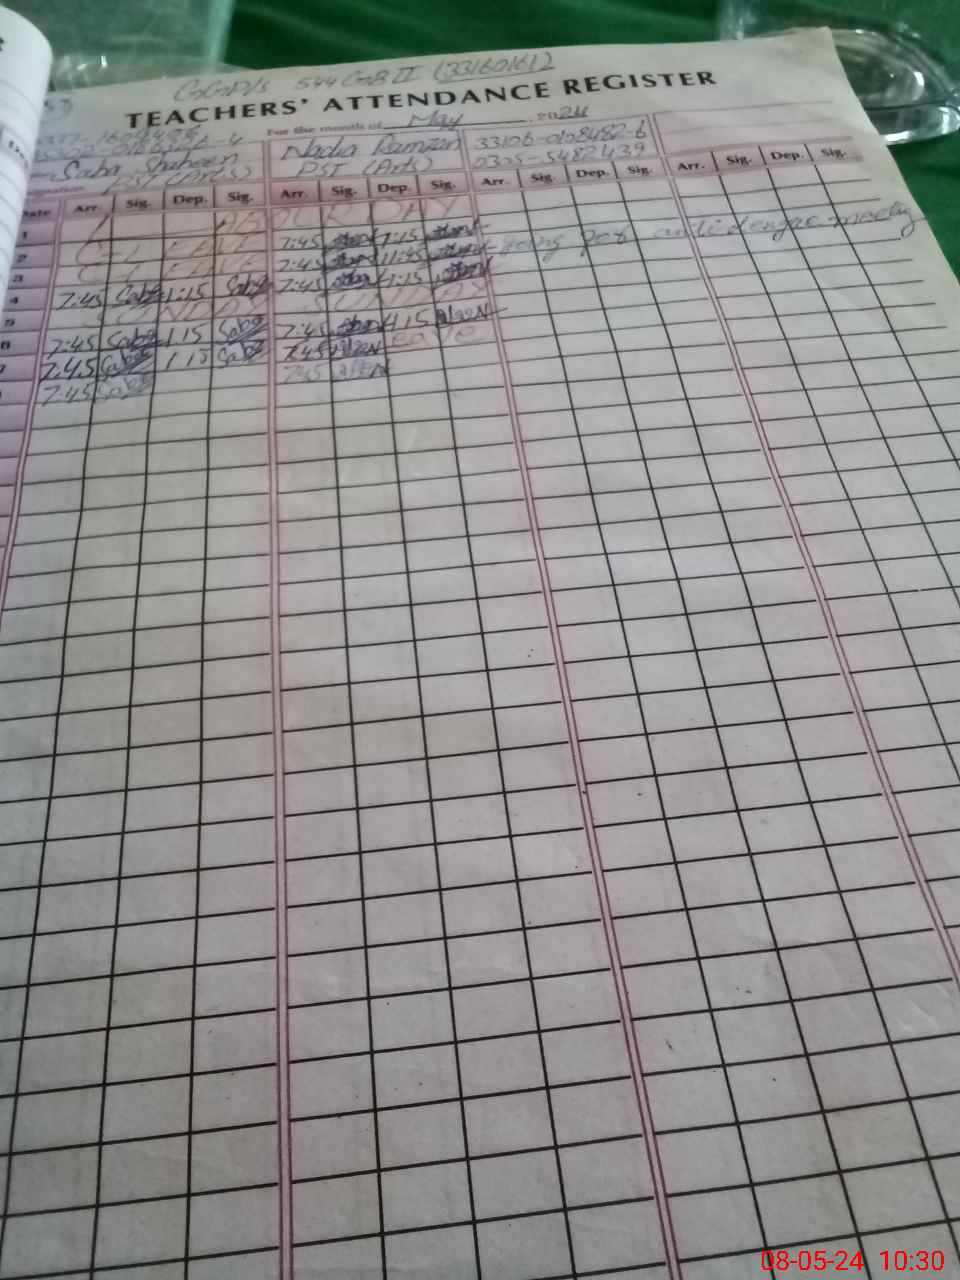 GGP/s 544 GB II (33160161)
TEACHERS' ATTENDANCE REGISTER
For the month of May 2024
Saba Shaheen Nadia Ramzan 33106-0108482-6
PST (Arts) PST (Arts) 0305-5482439
Date Arr. Sig. Dep. Sig. Arr. Sig. Dep. Sig. Arr. Sig. Dep. Sig. Arr. Sig. Dep. Sig.
1 LABOUR DAY
2 C-LEAVE 7:45 1:15
3 C-LEAVE 7:45 11:45 going for anti dengue meeting
4 7:45 Saba 1:15 Saba 7:45 1:15
5 SUNDAY SUNDAY
6 7:45 Saba 1:15 Saba 7:45 1:15
7 7:45 Saba 1:15 Saba 7:45 leave
7:45 Saba 7:45
08-05-24 10:30